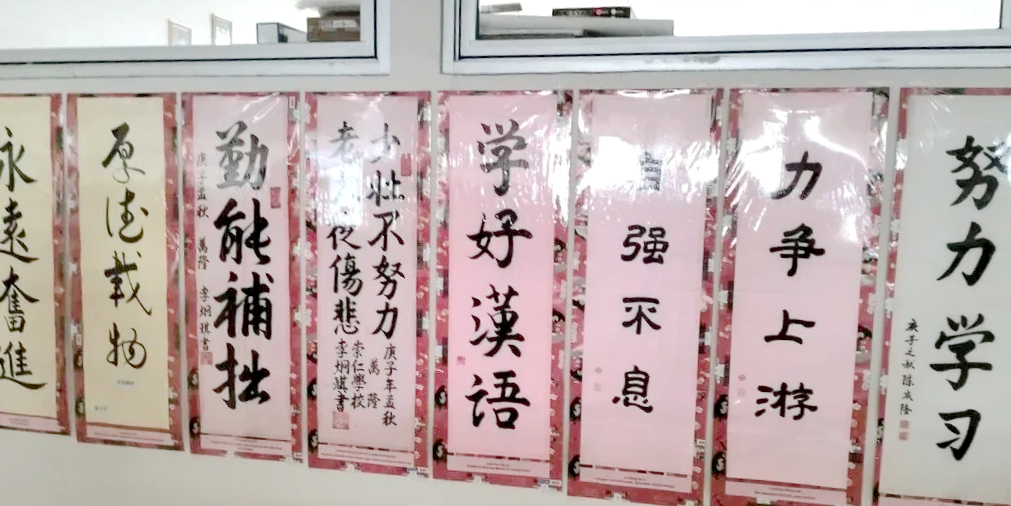 永遠奮進
厚德載物
勤能補拙
庚子孟秋 萬隆 李炯琪書
少壯不努力
老大徒傷悲
庚子年孟秋
萬隆
崇仁學校
李炯琪書
学好漢語
自强不息
力争上游
努力学习
庚子之秋 陈